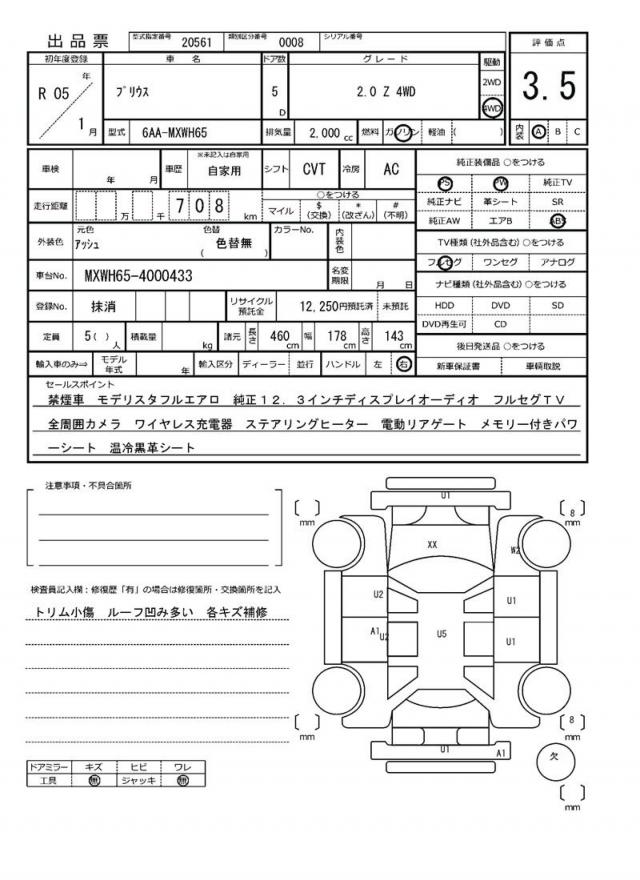 出品票 型式指定番号 20561 類別区分番号 0008 シリアル番号
評価点
3.5
初年度登録 車名 ドア数 グレード 駆動
R 05 年 1 月 プリウス 5 D 2.0 Z 4WD 2WD 4WD
型式 6AA-MXWH65 排気量 2,000 cc 燃料 ガソリン 軽油 ( ) 内装 A B C
車検 年 月 車歴 ※未記入は自家用 自家用 シフト CVT 冷房 AC
走行距離 万 千 7 0 8 km ○をつける マイル $(交換) *(改ざん) #(不明)
外装色 元色 アッシュ 色替 ( 色替無 ) カラーNo. 内装色
車台No. MXWH65-4000433 名変期限 月 日
登録No. 抹消 リサイクル預託金 12,250円預託済 未預託
定員 5( ) 人 積載量 kg 諸元 長さ 460 cm 幅 178 cm 高さ 143 cm
輸入車のみ⇒ モデル年式 年 輸入区分 ディーラー 並行 ハンドル 左 右
純正装備品 ○をつける
PS PW 純正TV
純正ナビ 革シート SR
純正AW エアB ABS
TV種類(社外品含む) ○をつける
フルセグ ワンセグ アナログ
ナビ種類(社外品含む) ○をつける
HDD DVD SD
DVD再生可 CD
後日発送品 ○をつける
新車保証書 車輌取説
セールスポイント
禁煙車 モデリスタフルエアロ 純正12.3インチディスプレイオーディオ フルセグTV
全周囲カメラ ワイヤレス充電器 ステアリングヒーター 電動リアゲート メモリー付きパワ
ーシート 温冷黒革シート
注意事項・不具合箇所
検査員記入欄：修復歴「有」の場合は修復箇所・交換箇所を記入
トリム小傷 ルーフ凹み多い 各キズ補修
ドアミラー キズ ヒビ ワレ
工具 無 ジャッキ 無
U1
[ ] mm
[ 8 ] mm
XX
W2
U2
U1
A1
U2
U5
U1
[ ] mm
[ 8 ] mm
U1
A1
欠
[ ] mm